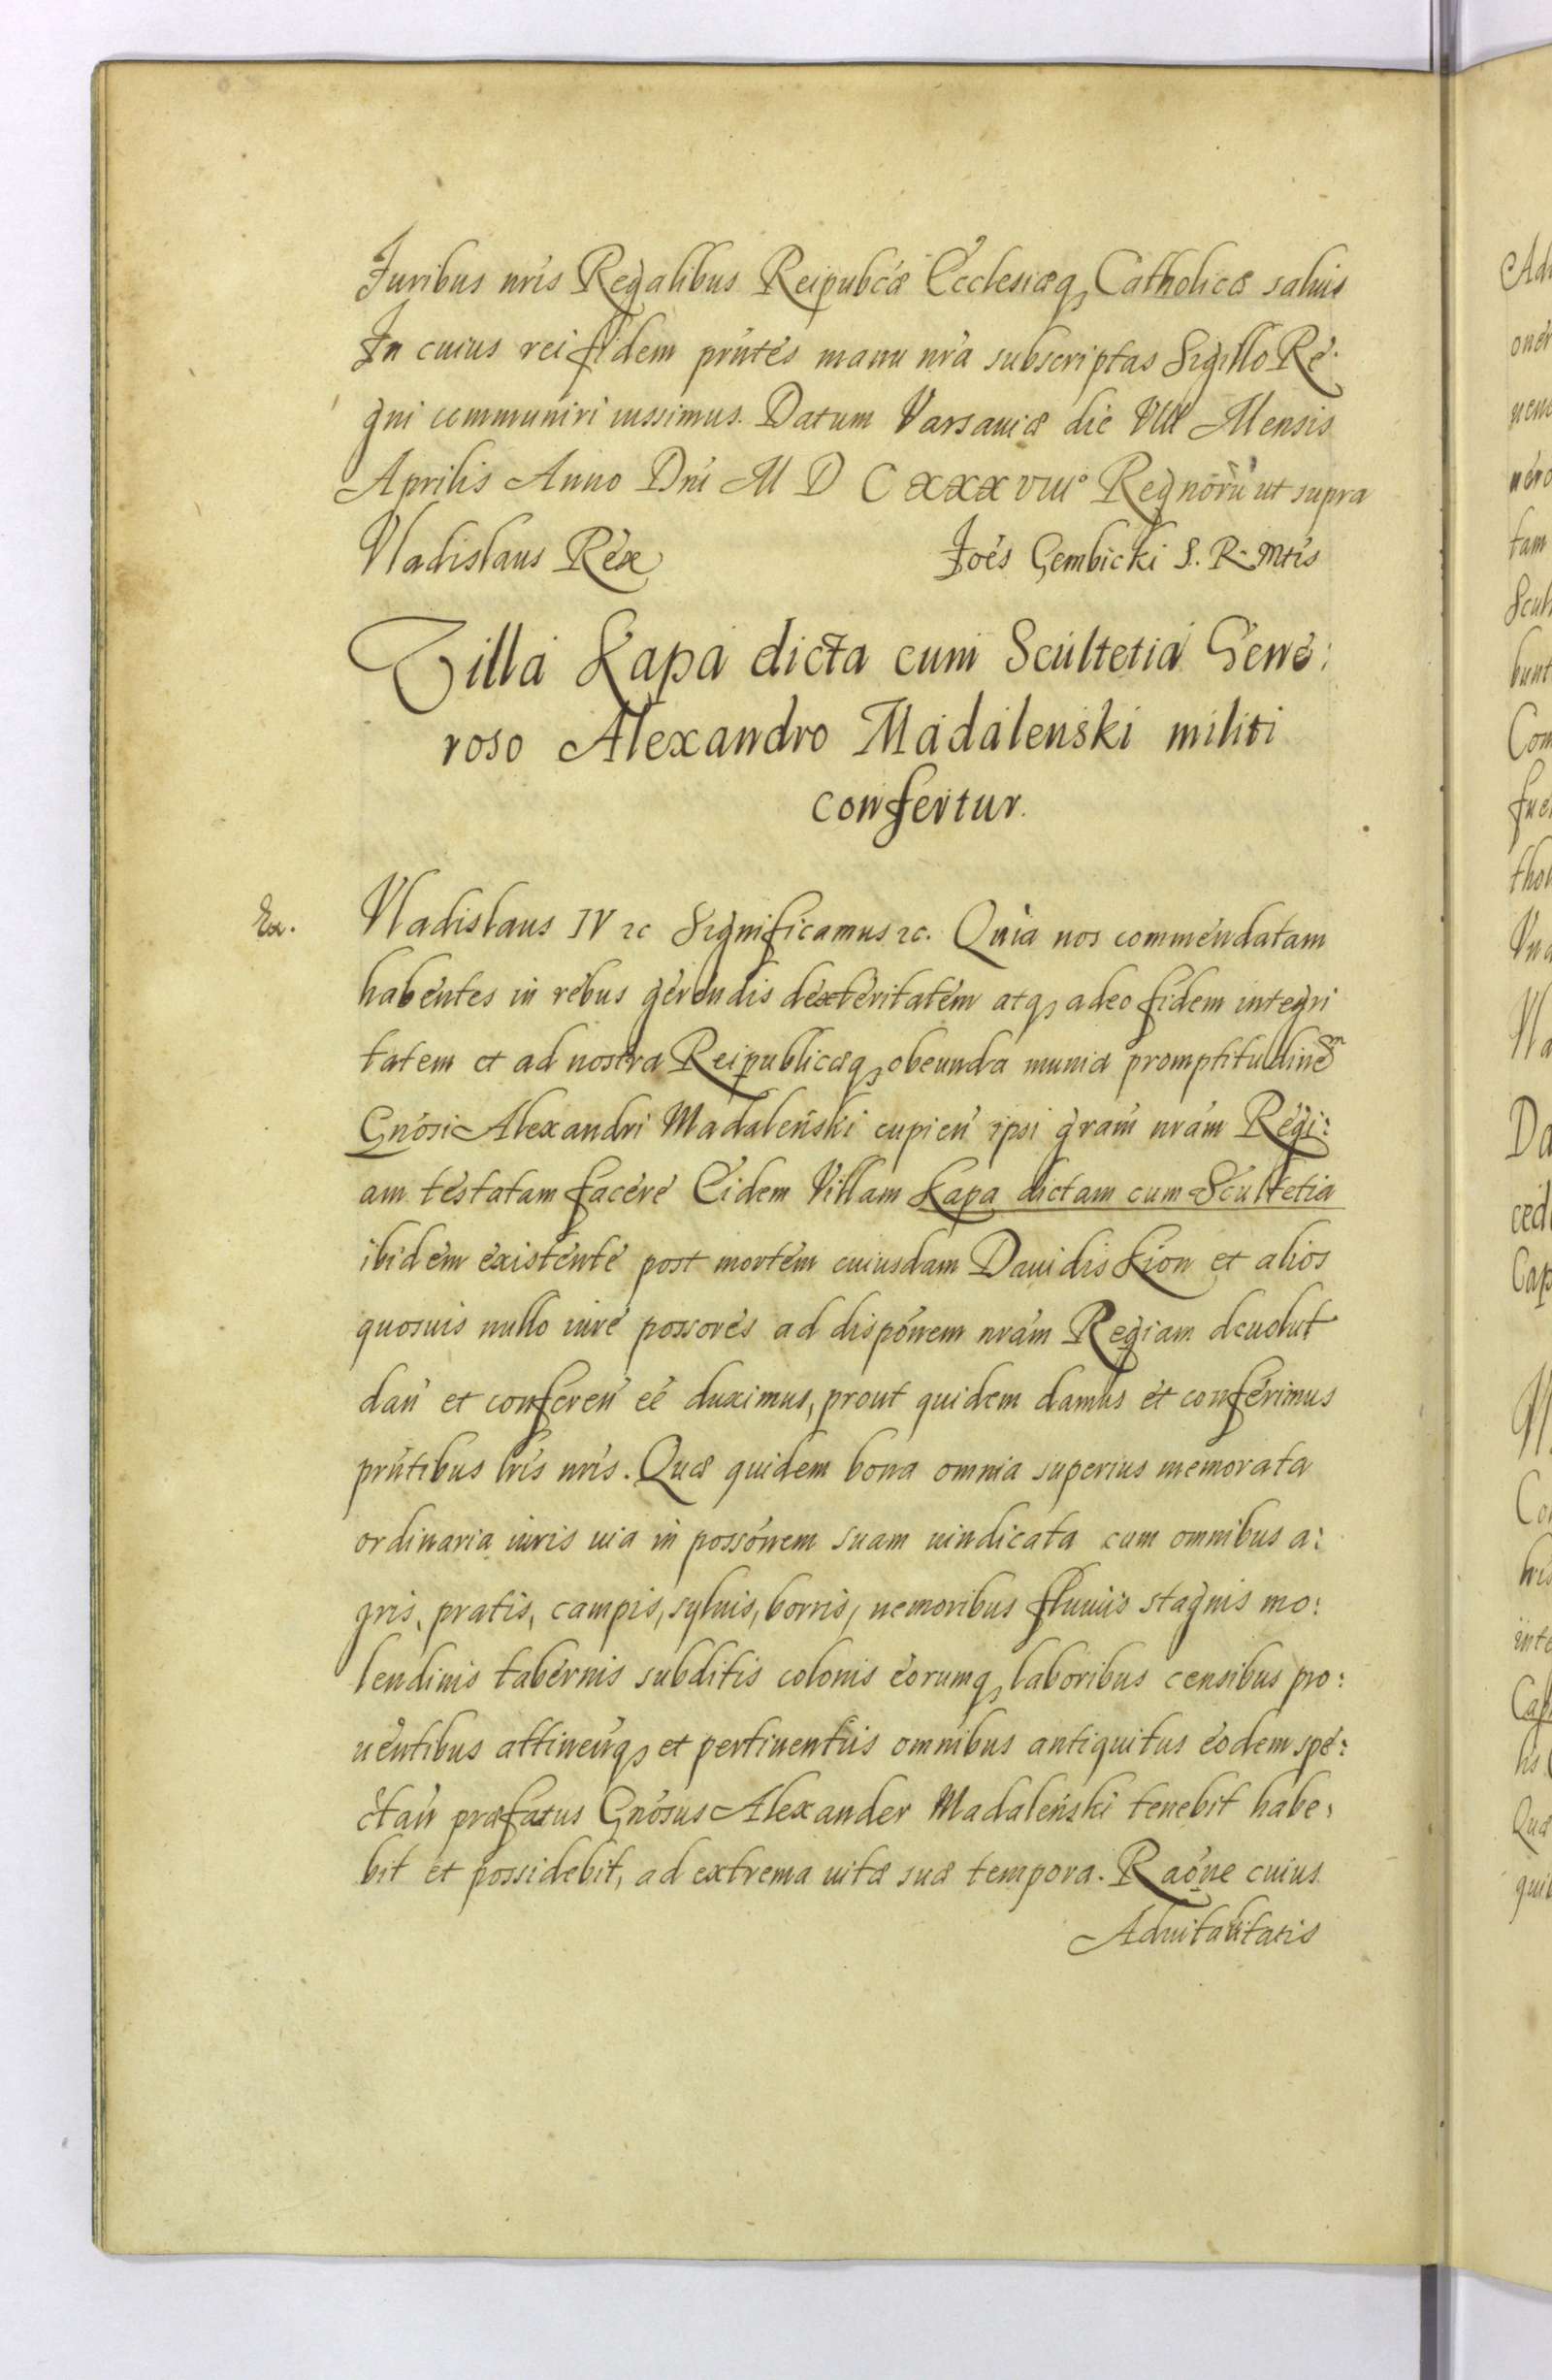 Juribus nris Regalibus Reipubcæ Ecclesiæq, Catholicæ saluis
In cuius rei fidem prntes manu nra subscriptas Sigillo Re:
gni communiri iussimus. Datum Varsauiæ die VIII Mensis
Aprilis Anno Dni M D C XXX VIII° Regnorũ ut supra
Vladislaus Rex
Joes Gembicki S. R. Mtis
Villa Kapa dicta cum Scultetia Gene:
roso Alexandro Madaleński militi
confertur.
Ex.
Vladislaus IV &c Significamus &c. Quia nos commendatam
habentes in rebus gerendis dexteritatem atq, adeo fidem integri
tatem et ad nostra Reipublicæq, obeunda munia promptitudinem
Gnosi Alexandri Madaleński cupień ipsi gram nram Regi:
am testatam facere Eidem Villam Kapa dictam cum Scultetia
ibidem existente post mortem cuiusdam Dauidis Kion et alios
quosuis nullo iure possores ad disponem nram Regiam deuolut
dań et confereń eé duximus, prout quidem damus et conferimus
prntibus lris nris. Quæ quidem bona omnia superius memorata
ordinaria iuris uia in possonem suam uindicata cum omnibus a:
gris, pratis, campis, syluis, borris, nemoribus fluuiis stagnis mo:
lendinis tabernis subditis colonis eorumq, laboribus censibus pro:
uentibus attineńq, et pertinentiis omnibus antiquitus eodem spe:
ctań præfatus Gnosus Alexander Madaleński tenebit habe:
bit et possidebit, ad extrema uitæ suæ tempora. Raone cuius
Aduitalitatis